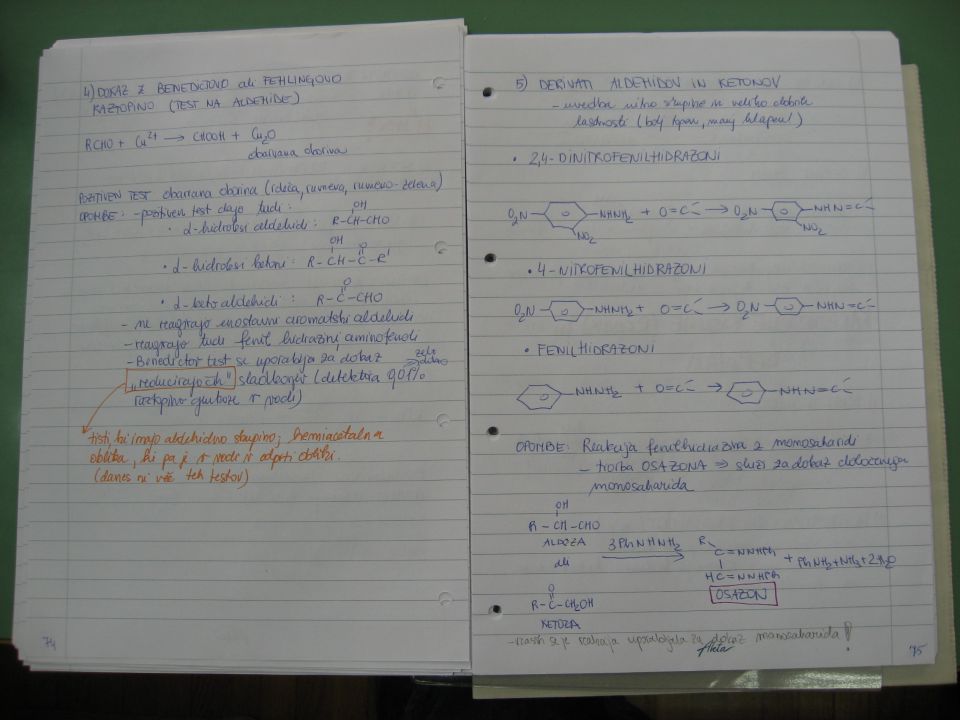 4) DOKAZ Z BENEDICTOVO ali FEHLINGOVO
RAZTOPINO (TEST NA ALDEHIDE)
RCHO + Cu²⁺ → CHOOH + Cu₂O
obarvana oborina
POZITIVEN TEST obarvana oborina (rdeča, rumena, rumeno-zelena)
OPOMBE: - pozitiven test dajo tudi:
OH
• α-hidroksi aldehidi: R-CH-CHO
OH O
• α-hidroksi ketoni: R-CH-C-R'
O
• α-keto aldehidi: R-C-CHO
- ne reagirajo enostavni aromatski aldehidi
- reagirajo tudi fenil hidrazini, aminofenoli
- Benedictov test se uporablja za dokaz
zelo
„reducirajočih" sladkorjev (detektira 0,01%
raztopino glukoze v vodi)
tisti, ki imajo aldehidno skupino; hemiacetalna
oblika, ki pa je v vodi v odprti obliki.
(danes ni več teh testov)
74
5) DERIVATI ALDEHIDOV IN KETONOV
- uvedba nitro skupine in veliko dobrih
lastnosti (bolj topen, manj hlapen!)
• 2,4-DINITROFENILHIDRAZONI
O₂N NHNH₂ + O=C → O₂N NHN=C
NO₂ NO₂
• 4-NITROFENILHIDRAZONI
O₂N NHNH₂ + O=C → O₂N NHN=C
• FENILHIDRAZONI
NHNH₂ + O=C → NHN=C
OPOMBE: Reakcija fenilhidrazina z monosaharidi
- tvorba OSAZONA ⇒ služi za dokaz določenega
monosaharida
OH
R-CH-CHO
ALDOZA
ali
3PhNHNH₂
R
C=NNHPh
HC=NNHPh
+ PhNH₂+NH₃+2H₂O
OSAZON
O
R-C-CH₂OH
KETOZA
se je reakcija uporabljala za dokaz monosaharida!
75